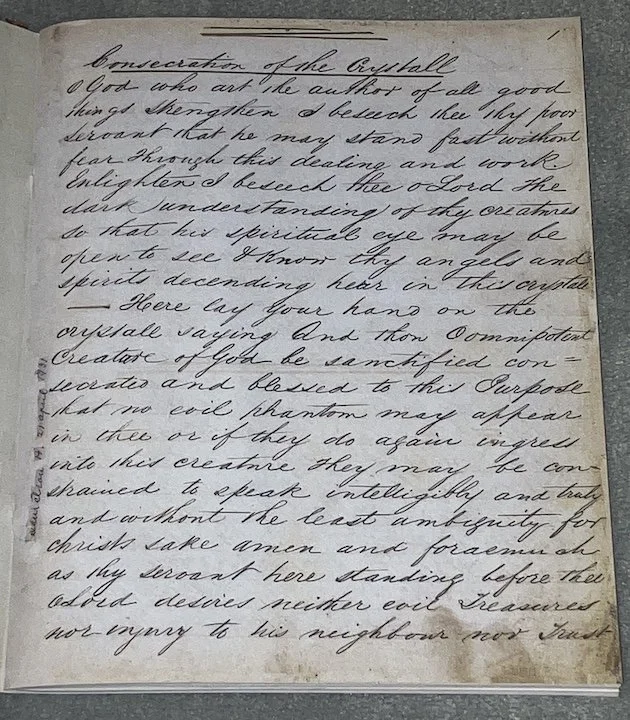 1
Consecration of the Crystall
O God who art the author of all good
things strengthen I beseech thee thy poor
servant that he may stand fast without
fear through this dealing and work.
Enlighten I beseech thee o Lord the
dark understanding of thy creatures
so that his spiritual eye may be
open to see & know thy angels and
spirits decending hear in this crystale
— Here lay your hand on the
crystalle saying And thou Oomnipotent
Creature of God be sanctified con=
secrated and blessed to this Purpose
that no evil phantom may appear
in thee or if they do again ingress
into this creature they may be con-
strained to speak intelligibly and truly
and without the least ambiguity for
christs sake amen and forasmuch
as thy servant here standing before thee
O Lord desires neither evil Treasures
nor injury to his neighbour nor Trust
april 1931